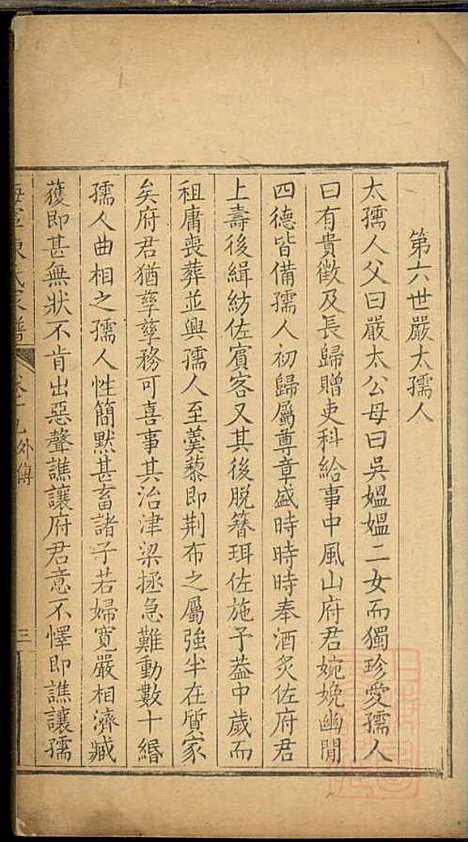 第六世嚴太孺人
太孺人父曰嚴太公母曰吳媼媼二女而獨珍愛孺人
曰有貴徵及長歸贈吏科給事中風山府君婉娩幽閒
四德皆備孺人初歸屬尊章盛時時時奉酒炙佐府君
上壽後緝紡佐賓客又其後脫簪珥佐施予葢中歲而
祖庸喪葬並興孺人至羹藜即荆布之屬強半在質家
矣府君猶孳孳務可喜事其治津梁拯急難動數十緡
孺人曲相之孺人性簡默甚畜諸子若婦寬嚴相濟臧
獲即甚無狀不肯出惡聲譙讓府君意不懌即譙讓孺
氏家譜
外傳
三